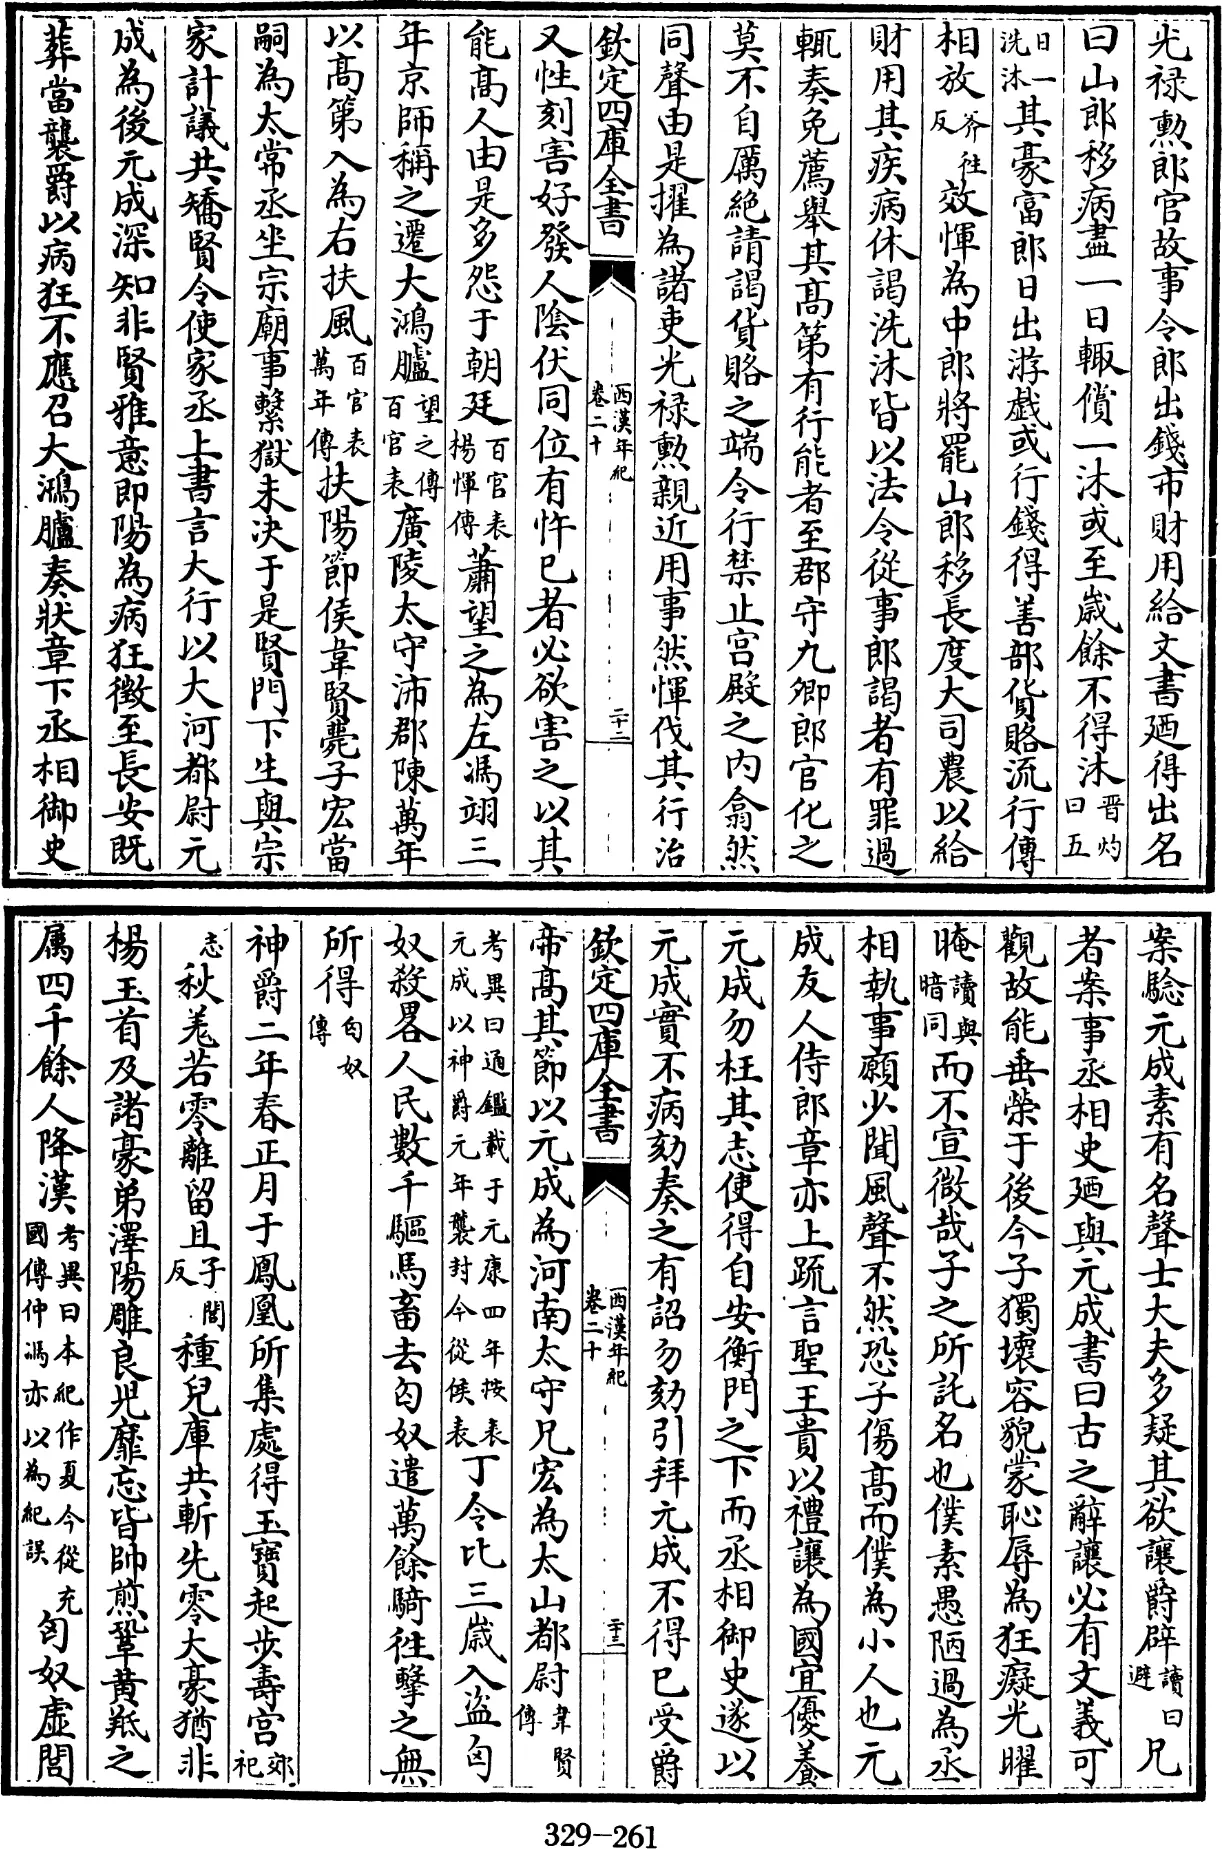 光禄勲郎官故事令郎出錢市財用給文書廼得出名
曰山郎移病盡一日輒償一沐或至嵗餘不得沐晋灼曰五
日一洗沐其豪富郎日出游戱或行錢得善部貨賂流行傳
相放斧往反效惲為中郎將罷山郎移長度大司農以給
財用其疾病休謁洗沐皆以法令從事郎謁者有罪過
輒奏免薦舉其髙第有行能者至郡守九卿郎官化之
莫不自厲絶請謁貨賂之端令行禁止宫殿之内翕然
同聲由是擢為諸吏光禄勲親近用事然惲伐其行治
欽定四庫全書
西漢年紀
卷二十
二十二
又性刻害好發人隂伏同位有忤已者必欲害之以其
能髙人由是多怨于朝廷百官表楊惲傳蕭望之為左馮翊三
年京師稱之遷大鴻臚望之傳百官表廣陵太守沛郡陳萬年
以髙第入為右扶風百官表萬年傳扶陽節侯韋賢薨子宏當
嗣為太常丞坐宗廟事繫獄未决于是賢門下生與宗
家計議共矯賢令使家丞上書言大行以大河都尉元
成為後元成深知非賢雅意即陽為病狂徴至長安既
葬當襲爵以病狂不應召大鴻臚奏狀章下丞相御史
案騐元成素有名聲士大夫多疑其欲讓爵辟讀曰避兄
者案事丞相史廼與元成書曰古之辭讓必有文義可
觀故能垂榮于後今子獨壊容貌蒙恥辱為狂癡光曜
晻讀與暗同而不宣微哉子之所託名也僕素愚陋過為丞
相執事願少聞風聲不然恐子傷髙而僕為小人也元
成友人侍郎章亦上疏言聖王貴以禮讓為國宜優養
元成勿枉其志使得自安衡門之下而丞相御史遂以
元成實不病劾奏之有詔勿劾引拜元成不得已受爵
欽定四庫全書
西漢年紀
卷二十
二十三
帝髙其節以元成為河南太守兄宏為太山都尉韋賢傳
考異曰通鑑載于元康四年按表元成以神爵元年襲封今從侯表丁令比三嵗入盗匈
奴殺畧人民數千驅馬畜去匈奴遣萬餘騎往擊之無
所得匈奴傳
神爵二年春正月于鳳凰所集處得玉寳起步壽宫郊祀
志秋羌若零離留且子閭反種兒庫共斬先零大豪猶非
楊玉首及諸豪弟澤陽雕良兒靡忘皆帥煎鞏黄羝之
属四千餘人降漢考異曰本紀作夏今從充國傳仲馮亦以為紀誤匈奴虚閭
329-261